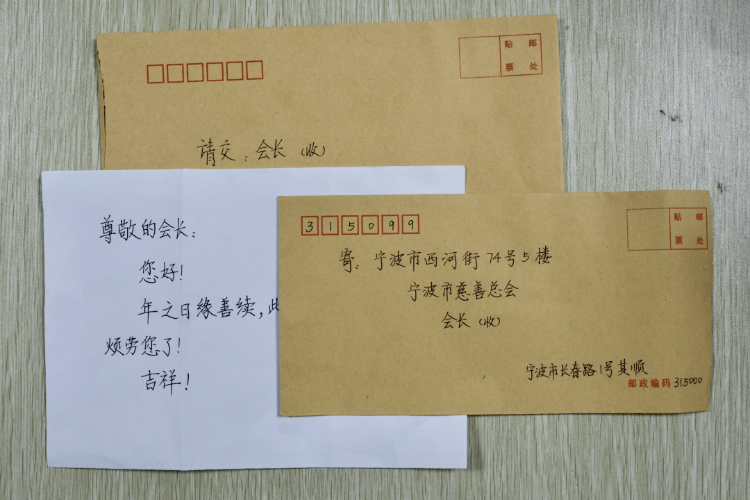 贴 邮
票 处
请交：会长（收）
尊敬的会长：
您好！
年之日缘善续，此
烦劳您了！
吉祥！
315099
贴 邮
票 处
寄：宁波市西河街74号5楼
宁波市慈善总会
会长（收）
宁波市长春路1号其顺
邮政编码 315000